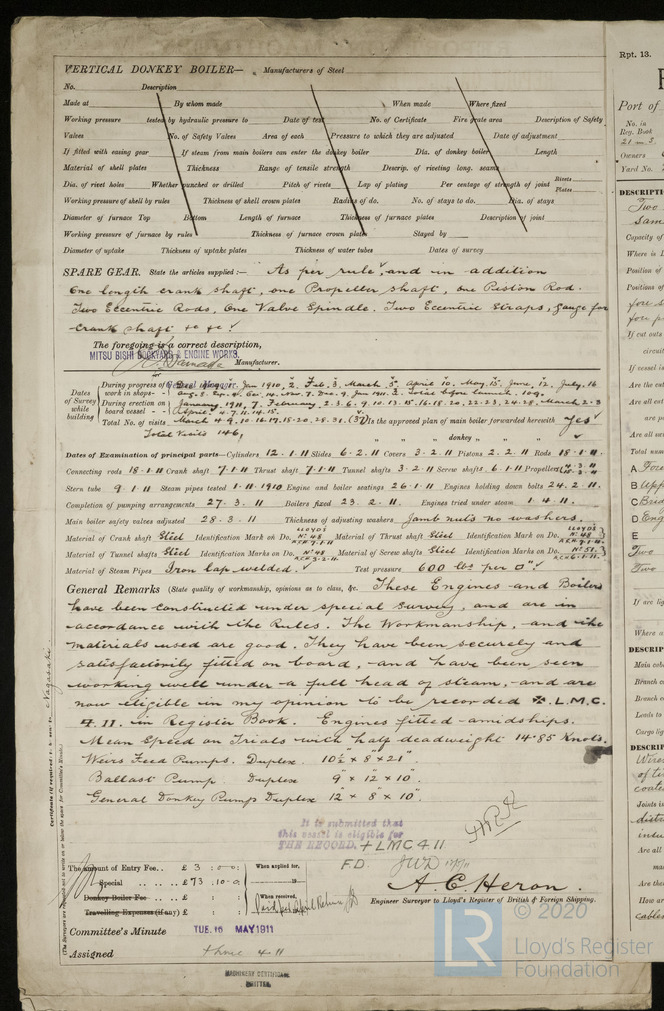 VERTICAL DONKEY BOILER— Manufacturers of Steel
No. Description
Made at By whom made When made Where fixed
Working pressure tested by hydraulic pressure to Date of test No. of Certificate Fire grate area Description of Safety
Valves No. of Safety Valves Area of each Pressure to which they are adjusted Date of adjustment
If fitted with easing gear If steam from main boilers can enter the donkey boiler Dia. of donkey boiler Length
Material of shell plates Thickness Range of tensile strength Descrip. of riveting long. seams
Dia. of rivet holes Whether punched or drilled Pitch of rivets Lap of plating Per centage of strength of joint Rivets Plates
Working pressure of shell by rules Thickness of shell crown plates Radius of do. No. of stays to do. Dia. of stays
Diameter of furnace Top Bottom Length of furnace Thickness of furnace plates Description of joint
Working pressure of furnace by rules Thickness of furnace crown plates Stayed by
Diameter of uptake Thickness of uptake plates Thickness of water tubes Dates of survey
SPARE GEAR. State the articles supplied:— As per rule, and in addition
One length crank shaft, one Propeller shaft, one Piston Rod.
Two Eccentric Rods, One Valve Spindle. Two Eccentric Straps, gauge for
Crank shaft &c &c
The foregoing is a correct description,
MITSU BISHI DOCKYARD & ENGINE WORKS. Manufacturer.
General Manager.
Dates of Survey while building
During progress of work in shops - - Jan 1910, 2. Feb. 3. March 5. April 10. May, 15. June, 12. July, 16
During erection on board vessel - - January 1911, 7. February, 2.3.6.9.10.13.15.16.18.20.22.23.24.28. March, 2.3
April 4.7.11.14.15.
Total No. of visits March 4.9.10.16.17.18.20.28.31. (37) Is the approved plan of main boiler forwarded herewith Yes
Total Visits 146. " " " donkey " " "
Dates of Examination of principal parts—Cylinders 12.1.11 Slides 6.2.11 Covers 3.2.11 Pistons 2.2.11 Rods 18.1.11
Connecting rods 18.1.11 Crank shaft 7.1.11 Thrust shaft 7.1.11 Tunnel shafts 3.2.11 Screw shafts 6.1.11 Propeller
Stern tube 9.1.11 Steam pipes tested 1.11.1910 Engine and boiler seatings 26.1.11 Engines holding down bolts 24.2.11.
Completion of pumping arrangements 27.3.11 Boilers fixed 23.2.11. Engines tried under steam 1.4.11.
Main boiler safety valves adjusted 28.3.11 Thickness of adjusting washers Jamb nuts no washers.
Material of Crank shaft Steel Identification Mark on Do. LLOYDS No. 48 Material of Thrust shaft Steel Identification Mark on Do. LLOYDS No. 48
Material of Tunnel shafts Steel Identification Marks on Do. No 48 Material of Screw shafts Steel Identification Marks on Do. No. 51.
Material of Steam Pipes Iron lap-welded. Test pressure 600 lbs per □"
General Remarks (State quality of workmanship, opinions as to class, &c. These Engines and Boilers
have been constructed under special survey, and are in
accordance with the Rules. The Workmanship, and the
materials used are good. They have been securely and
satisfactorily fitted on board, and have been seen
working well under a full head of steam, and are
now eligible in my opinion to be recorded ✠ L.M.C.
4.11. in Register Book. Engines fitted amidships.
Mean Speed on Trials with half deadweight 14.85 Knots.
Weirs Feed Pumps. Duplex 10½ × 8" × 21"
Ballast Pump Duplex 9" × 12" × 10".
General Donkey Pumps Duplex 12" × 8" × 10".
It is submitted that
this vessel is eligible for
THE RECORD. + LMC 4.11
F.D.
The amount of Entry Fee.. £ 3 : 0 : 0 : When applied for,
Special .. .. .. £ 73 : 10 : 0 :
Donkey Boiler Fee .. .. £ : : When received,
Travelling Expenses (if any) £ : :
A. C. Heron.
Engineer Surveyor to Lloyd's Register of British & Foreign Shipping.
Committee's Minute TUE. 16 MAY 1911
Assigned + LMC 4.11
MACHINERY CERTIFICATE
WRITTEN.
Nagasaki
Rpt. 13.
Port of
No. in
Reg. Book
Owners
Yard No.
DESCRIPTI
Two
Sam
Capacity of
Where is
Position of
Positions of
© 2020
LR
Lloyd's Register
Foundation